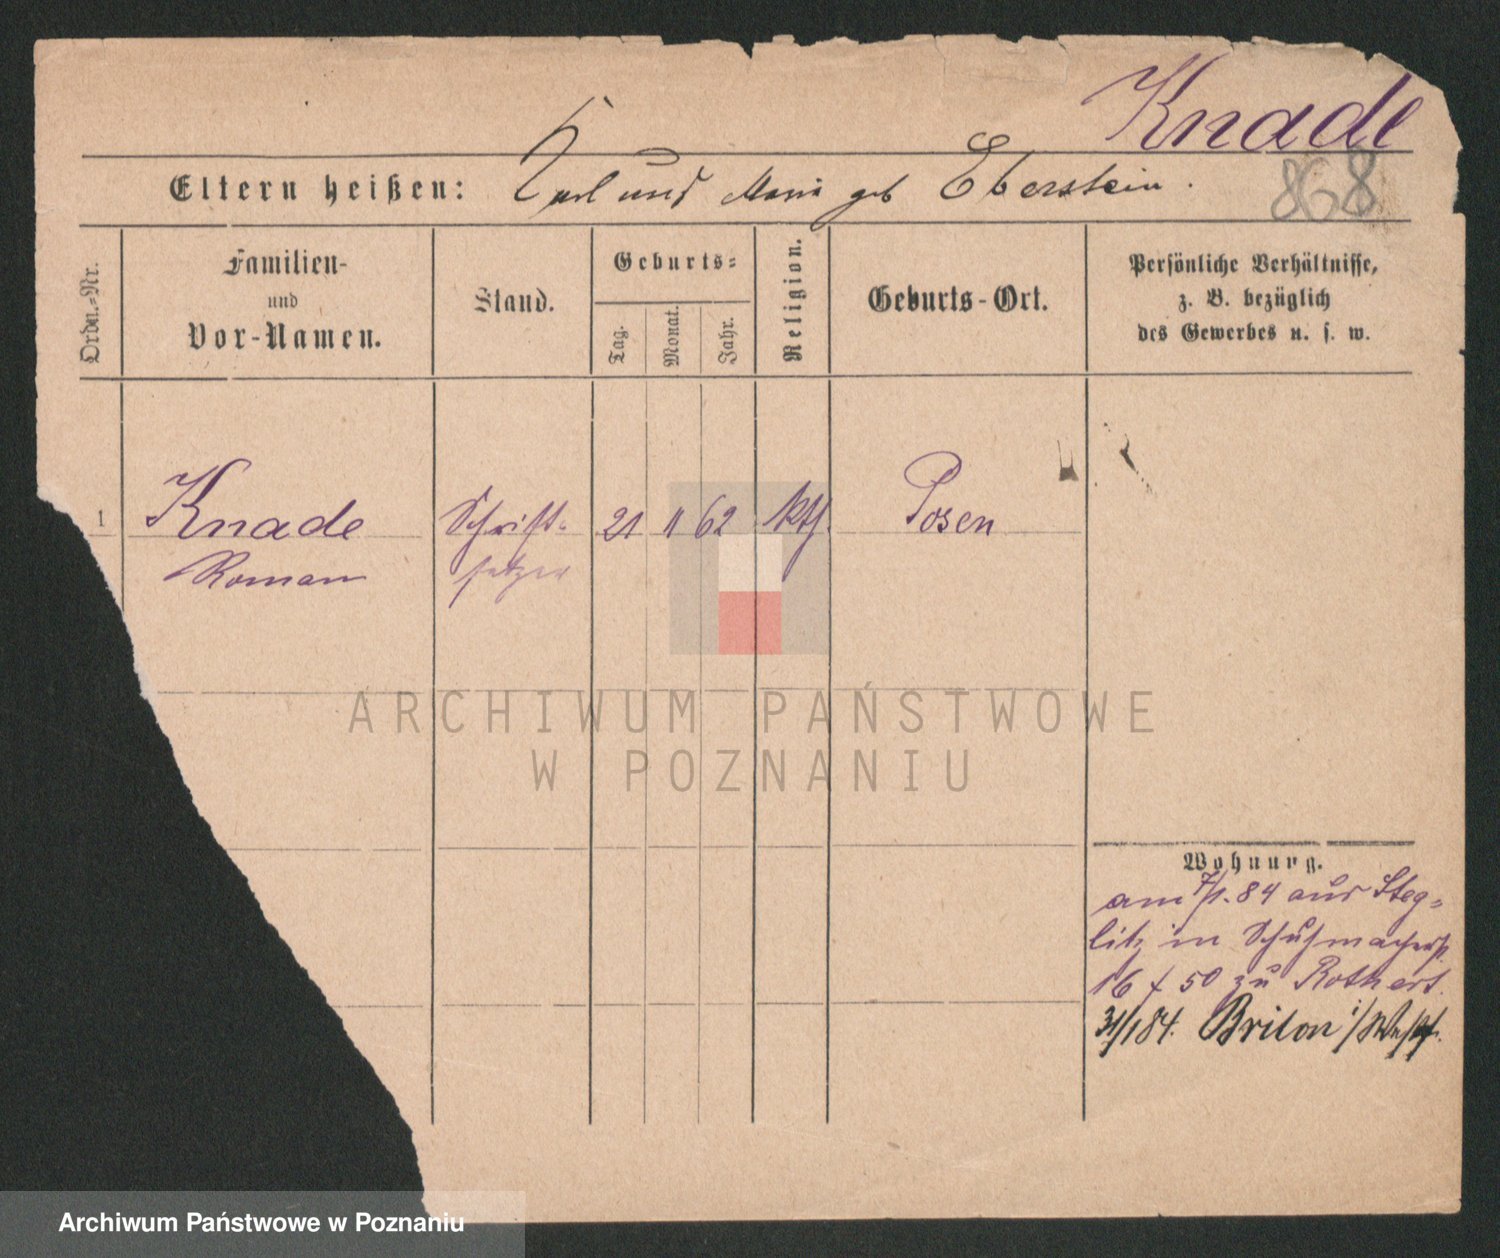 Knade
868
Eltern heißen: Karl und Maria geb Eberstein.
Ordn.-Nr.
Familien-
und
Vor-Namen.
Stand.
Geburts-
Tag.
Monat.
Jahr.
Religion.
Geburts-Ort.
Persönliche Verhältnisse,
z. B. bezüglich
des Gewerbes u. s. w.
1 Knade Schrift- 21 11 62 kth. Posen
Roman setzer
ARCHIWUM PAŃSTWOWE
W POZNANIU
Wohnung.
am 7/1. 84 aus Steg-
litz in Schuhmacherst.
16 f 50 zu Rothert.
31/1 84. Brilon i/Westf.
Archiwum Państwowe w Poznaniu